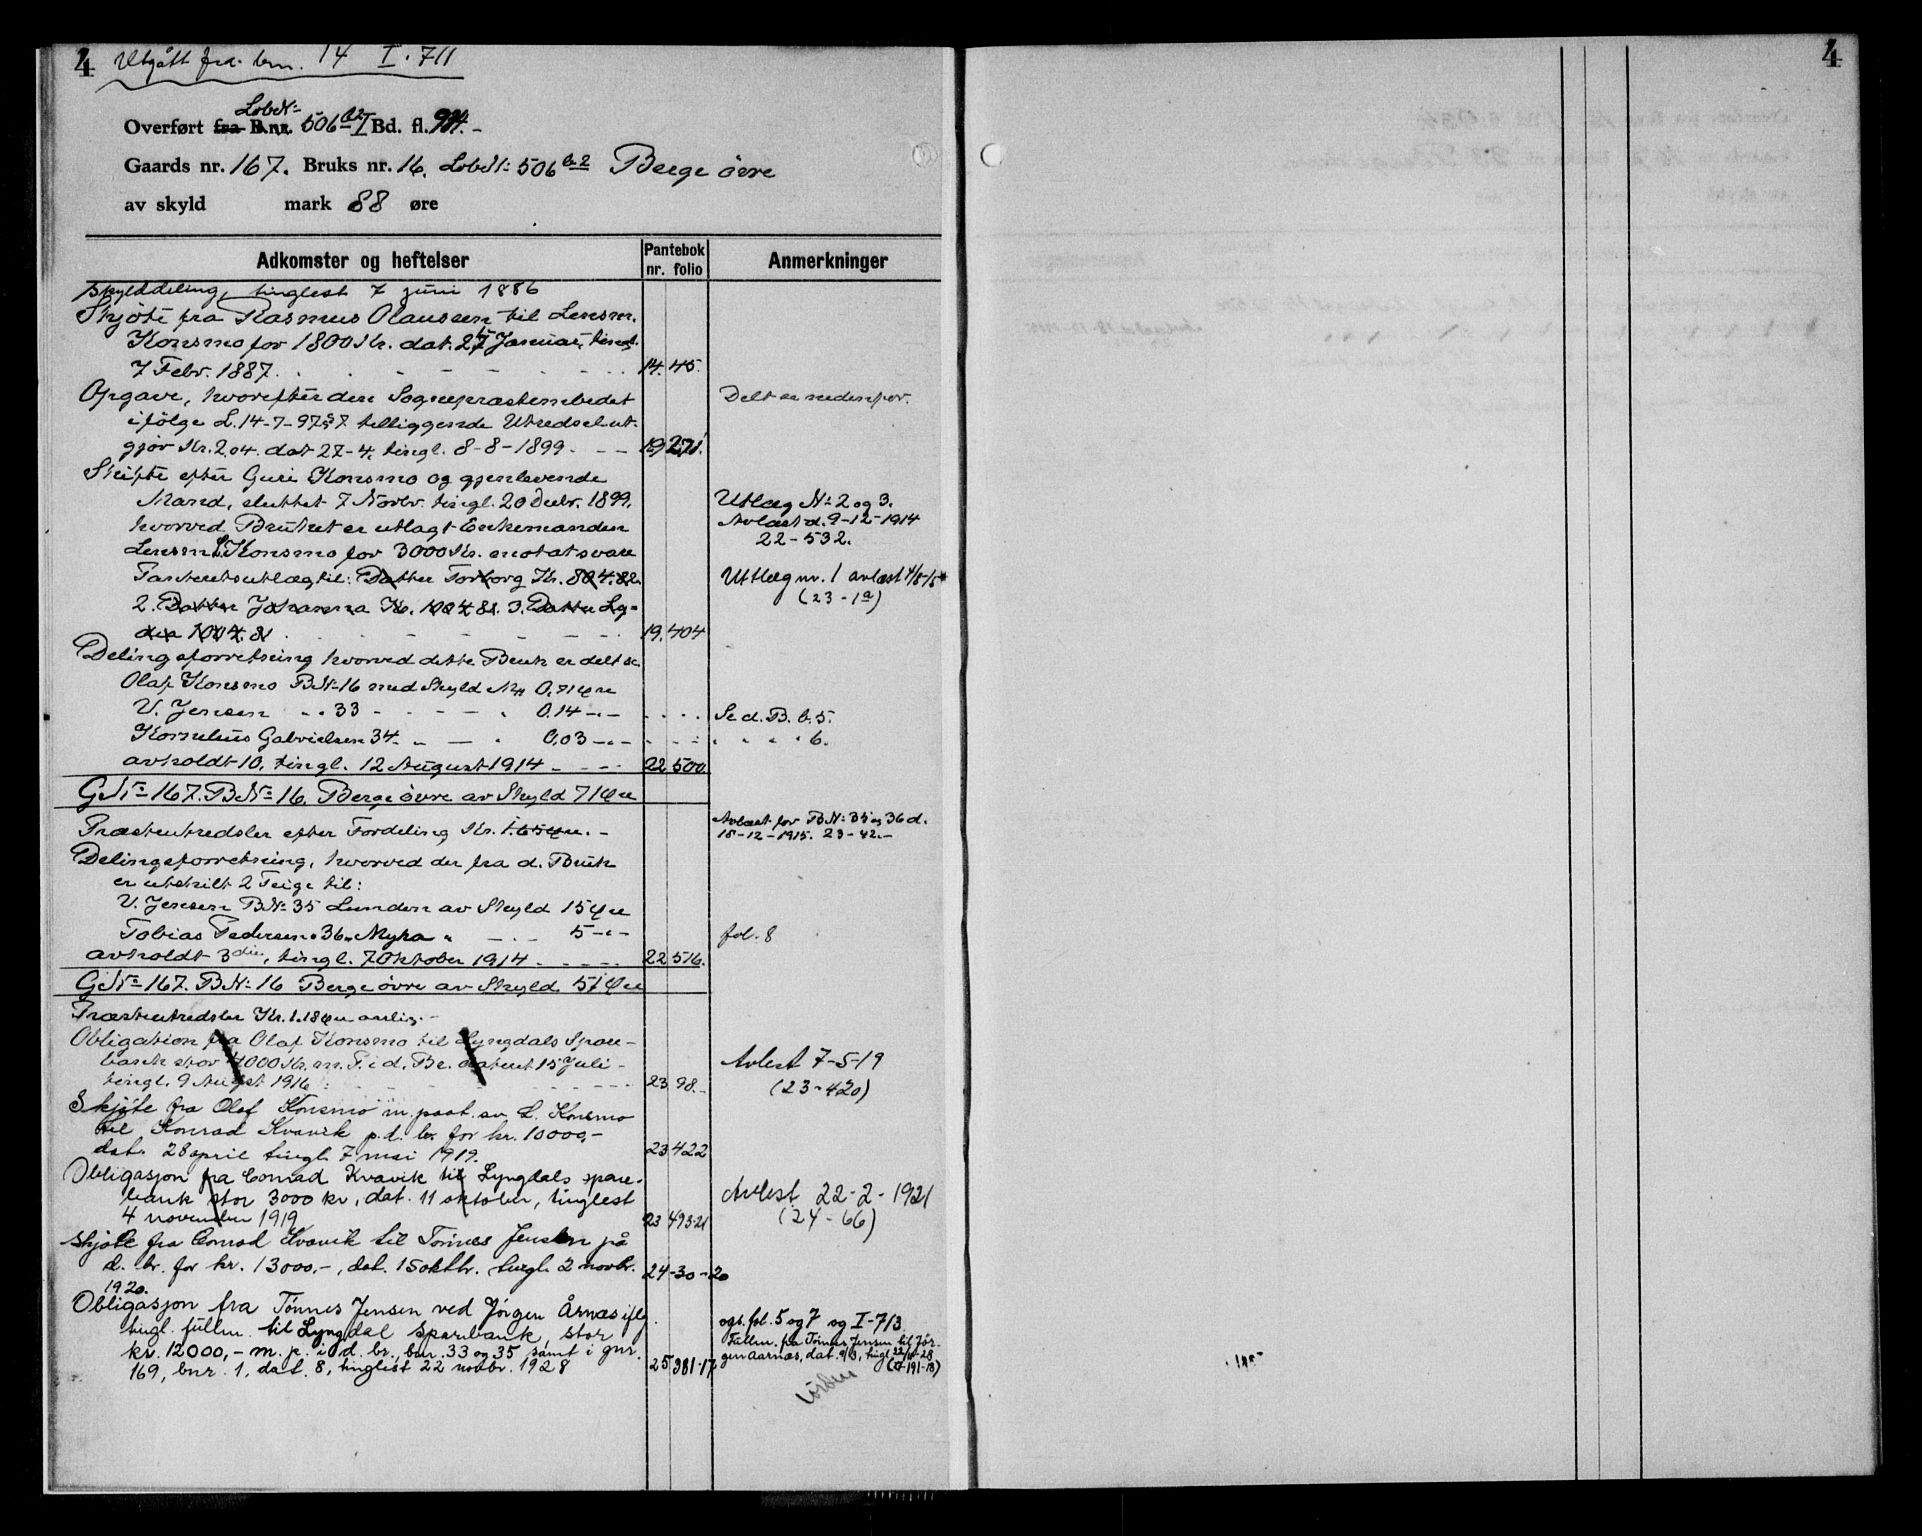 4 Utgått fra bnr. 14 I. 711
LøbeN:
Overført fra B.nr. 506 b2 I Bd. fl. 984.-
Gaards nr. 167. Bruks nr. 16. LøbeN: 506 b2 Berge övre
av skyld mark 88 øre
Adkomster og heftelser
Pantebok
nr. folio
Anmerkninger
Skylddeling, tinglest 7 juni 1886
Skjöte fra Rasmus Olaussen til Lensm.
Konsmo for 1800 Kr. dat. 27 Januar, tingl.
7 Febr. 1887. 14. 45.
Opgave, hvorefter den Sognepræstembedet
Delt se nedenfor.
ifölge L. 14-7-97 § 7 tilliggende Utredsel ut-
gjör Kr. 2,04. dat 27-4. tingl. 8-8-1899. 19 271.
Skifte efter Guri Konsmo og gjenlevende
Mand, sluttet 7 Novbr. tingl. 20 Decbr. 1899,
Utlæg N: 2 og 3.
hvorved Bruket er utlagt Enkemanden
Avlæst d. 9-12-1914
22-532.
Lensm. L. Konsmo for 3000 Kr. mot at svare
Panteutlæg til: Datter Torborg Kr. 804.82.
Utlæg nr. 1 avlæst 4/5-15
(23-1a)
2. Datter Johanna Kr. 1004.81. 3. Datter Ly-
dia 1004.81 19. 404
Delingsforretning hvorved dette Bruk er delt se.
Olaf Konsmo BN: 16 med Skyld Mk 0,71 Öre
V. Jensen " " 33 - - - " 0,14 -"-
Se d. B. b. 5.
Kornelius Gabrielsen 34 - " - " 0,03 -"-
" " " " 6.
avholdt 10, tingl. 12 August 1914 22 500
GN: 167. BN: 16. Berge övre av Skyld 71 Öre
Præsteutredsler efter Fordeling Kr. 1.65 Öre. -
Avlæst for BN: 35 og 36 d.
18-12-1915. 23-42.-
Delingsforretning, hvorved der fra d. Bruk
er utskilt 2 Teige til:
V. Jensen BN: 35 Lunden av Skyld 15 Öre
Tobias Pedersen " 36 " Myra " - " - 5 -"-
fol. 8
avholdt 3die, tingl. 7 Oktober 1914 22 516.
GN: 167. BN: 16 Berge övre av Skyld 51 Öre
Præsteutredsler Kr. 1.18 Öre aarlig. -
Obligation fra Olaf Konsmo til Lyngdals Spare-
bank stor 4000 Kr. m. P. i d. Br. datert 15 Juli -
Avlest 7-5-19
tingl. 9 August 1916 23 98.-
(23-420)
Skjöte fra Olaf Konsmo m. paat. av L. Konsmo
til Konrad Kvavik p. d. br. for kr. 10000,-
dat. 28 april tingl. 7 mai 1919. 23 422
Obligasjon fra Conrad Kvavik til Lyngdals spare-
bank stor 3000 kr, dat. 11 oktober, tinglest
Avlest 22-2-1921
4 november 1919 23 493-21
(24-66)
Skjøte fra Conrad Kvavik til Tønnes Jensen på
d. br. for kr. 13000,-, dat. 15 oktbr. tingl. 2 novbr.
1920. 24-30-20
Obligasjon fra Tønnes Jensen ved Jörgen Årnæs iflg.
ogs. fol. 5 og 7 og I-713.
tingl. fullm. til Lyngdal sparebank, stor
Fullm. fra Tønnes Jensen til Jör-
kr. 12000,- m. p. i d. br., bnr. 33 og 35 samt i gnr.
gen Aarnæs, dat. 9/3, tingl. 22/11-28
169, bnr. 1, dat. 8, tinglest 22 novbr. 1928 25 381-17
(27-191-18)
4